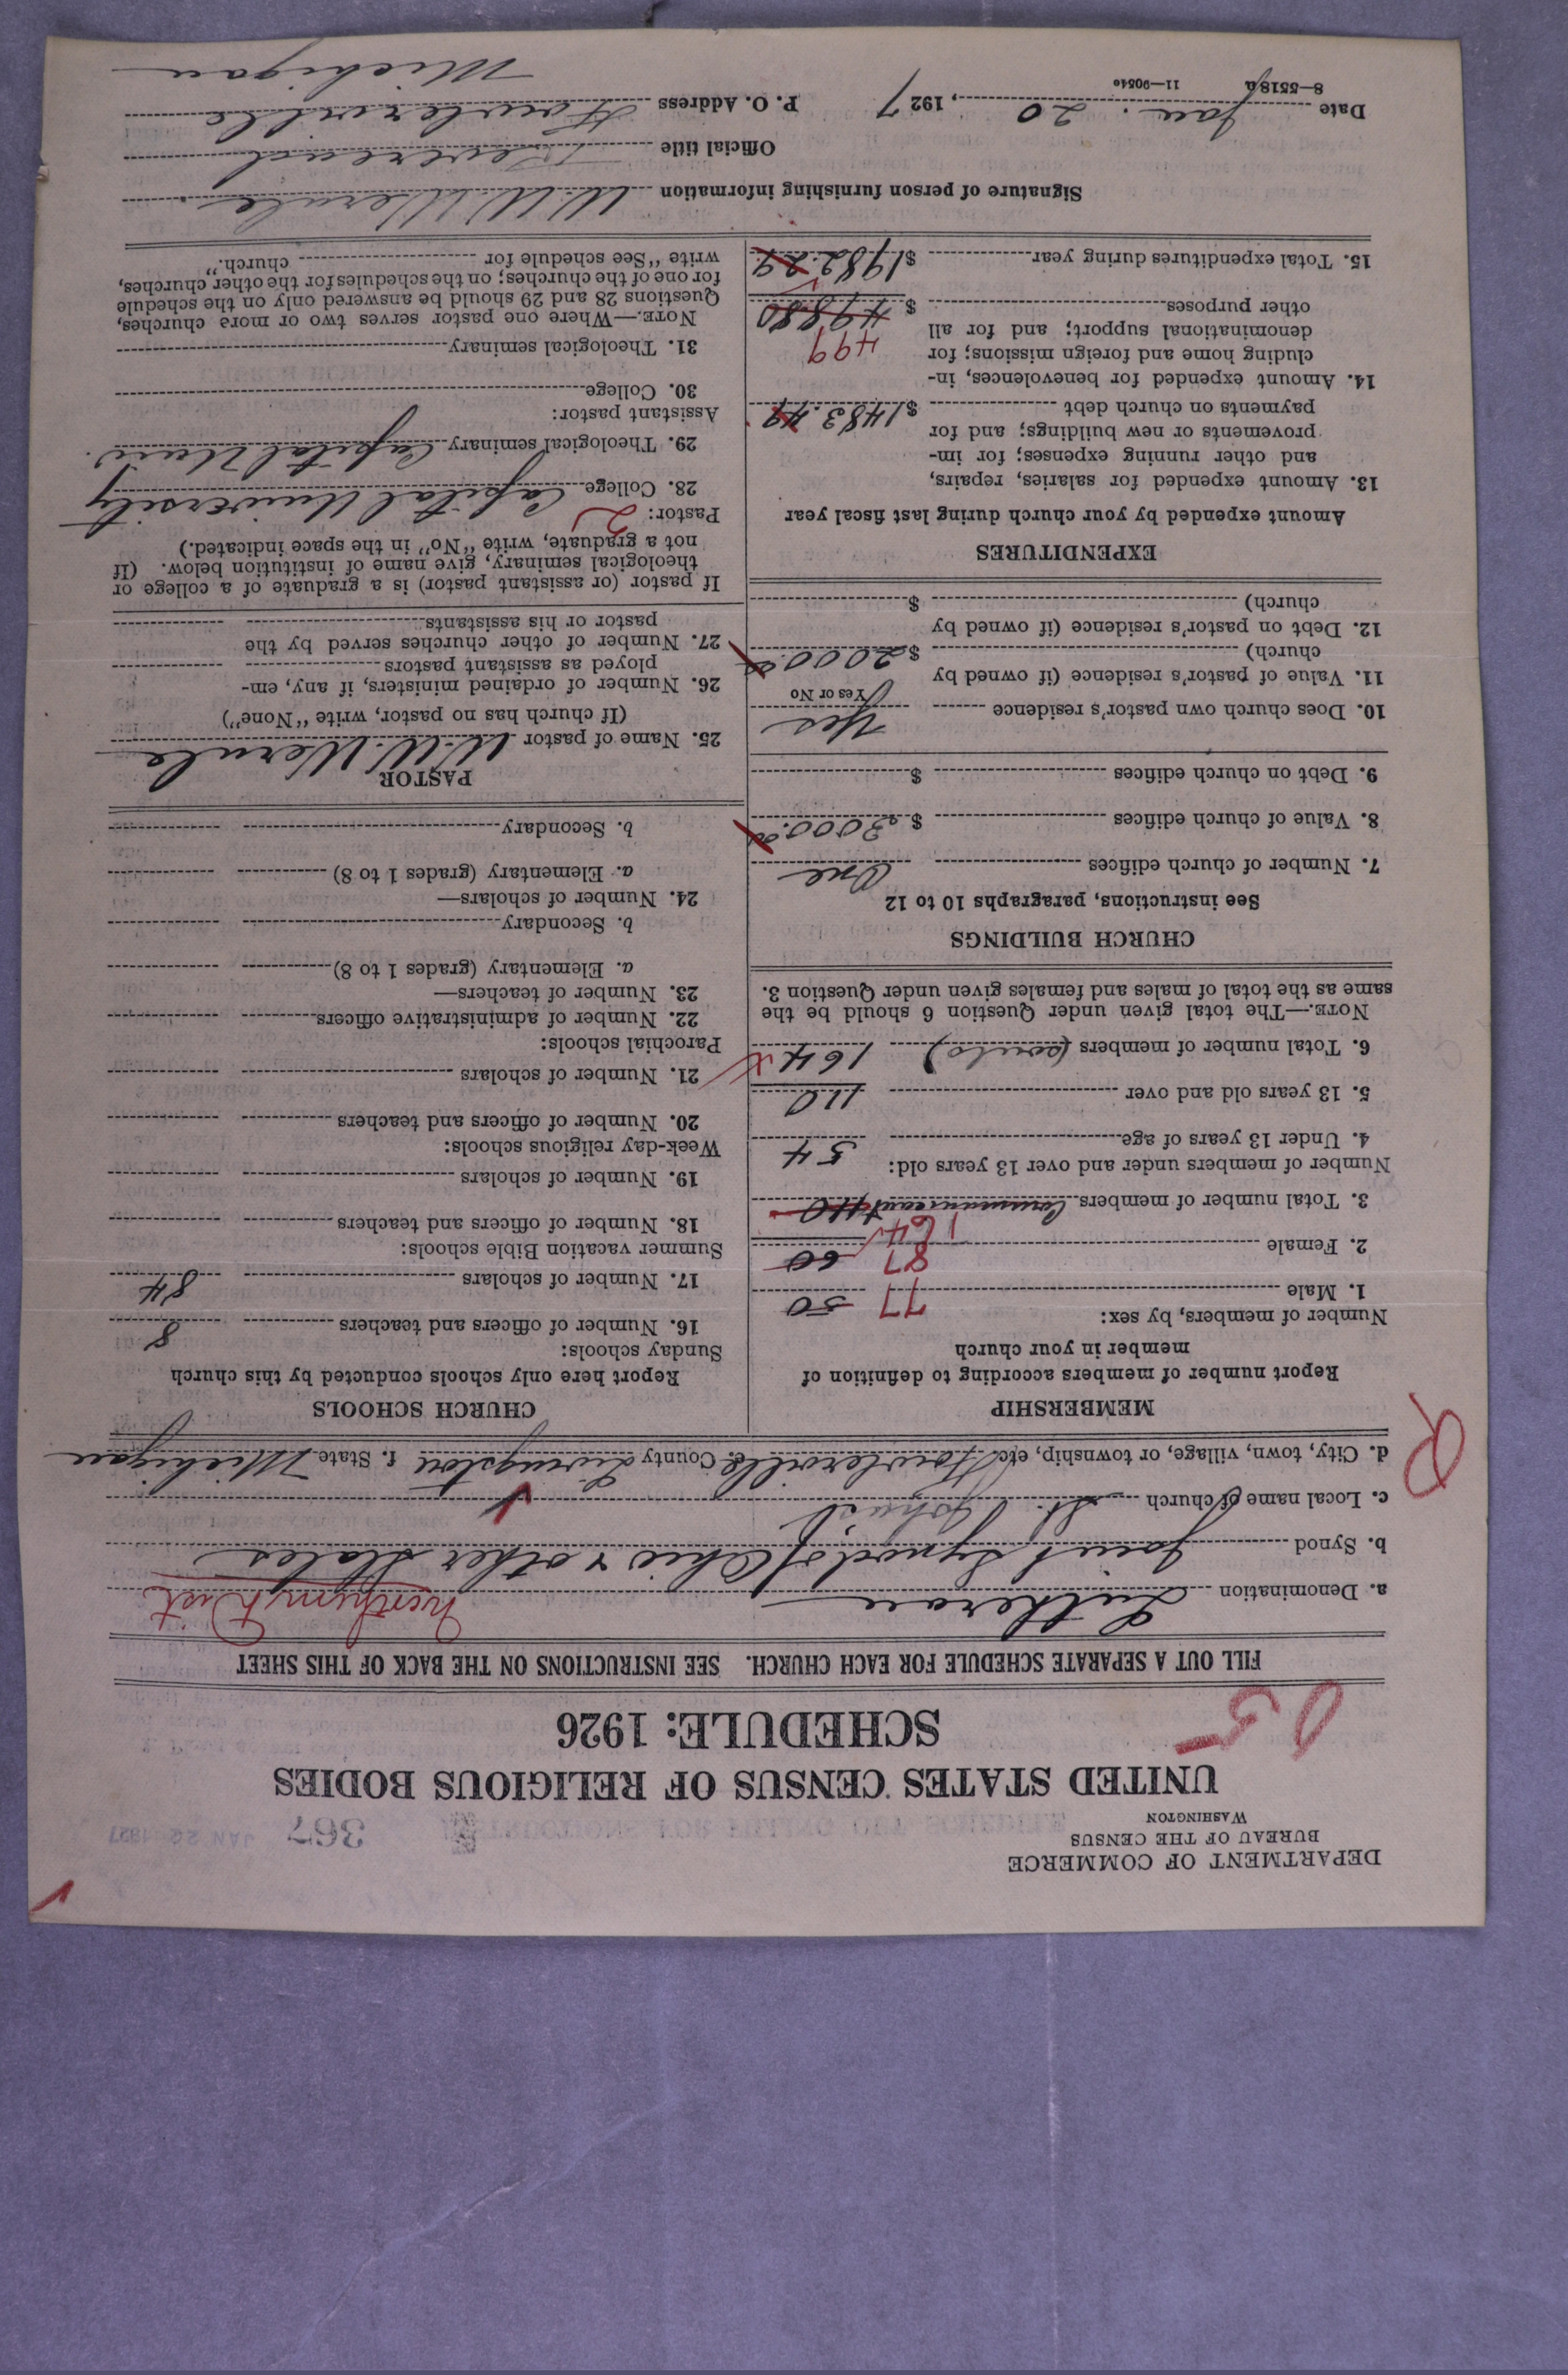 DEPARTMENT OF COMMERCE
BUREAU OF THE CENSUS
WASHINGTON
367
JAN 22 1927
UNITED STATES CENSUS OF RELIGIOUS BODIES
SCHEDULE: 1926
FILL OUT A SEPARATE SCHEDULE FOR EACH CHURCH. SEE INSTRUCTIONS ON THE BACK OF THIS SHEET
a. Denomination Lutheran
b. Synod Joint Synod of Ohio & other States
c. Local name of church St. John's
d. City, town, village, or township, etc. Fowlerville e. County Livingston f. State Michigan
MEMBERSHIP
Report number of members according to definition of
member in your church
Number of members, by sex:
1. Male 77 50
2. Female 87 60
164
3. Total number of members Communicant 110
Number of members under and over 13 years old:
4. Under 13 years of age 54
5. 13 years old and over 110
6. Total number of members (souls) 164
NOTE.—The total given under Question 6 should be the
same as the total of males and females given under Question 3.
CHURCH BUILDINGS
See instructions, paragraphs 10 to 12
7. Number of church edifices One
8. Value of church edifices $3000.00
9. Debt on church edifices $
10. Does church own pastor's residence Yes
Yes or No
11. Value of pastor's residence (if owned by
church) $2000.00
12. Debt on pastor's residence (if owned by
church) $
EXPENDITURES
Amount expended by your church during last fiscal year
13. Amount expended for salaries, repairs,
and other running expenses; for im-
provements or new buildings; and for
payments on church debt $1483.49
14. Amount expended for benevolences, in-
cluding home and foreign missions; for
denominational support; and for all 499
other purposes $498 80
15. Total expenditures during year $1982.29
CHURCH SCHOOLS
Report here only schools conducted by this church
Sunday schools:
16. Number of officers and teachers 8
17. Number of scholars 84
Summer vacation Bible schools:
18. Number of officers and teachers
19. Number of scholars
Week-day religious schools:
20. Number of officers and teachers
21. Number of scholars
Parochial schools:
22. Number of administrative officers
23. Number of teachers—
a. Elementary (grades 1 to 8)
b. Secondary
24. Number of scholars—
a. Elementary (grades 1 to 8)
b. Secondary
PASTOR
25. Name of pastor W. W. Wernle
(If church has no pastor, write "None")
26. Number of ordained ministers, if any, em-
ployed as assistant pastors
27. Number of other churches served by the
pastor or his assistants
If pastor (or assistant pastor) is a graduate of a college or
theological seminary, give name of institution below. (If
not a graduate, write "No" in the space indicated.)
Pastor: 2
28. College Capital University
29. Theological seminary Capital Univ.
Assistant pastor:
30. College
31. Theological seminary
NOTE.—Where one pastor serves two or more churches,
Questions 28 and 29 should be answered only on the schedule
for one of the churches; on the schedules for the other churches,
write "See schedule for church."
Signature of person furnishing information W. W. Wernle.
Official title Reverend
Date Jan. 20, 1927 P. O. Address Fowlerville
Michigan
8—5518a 11—9054e